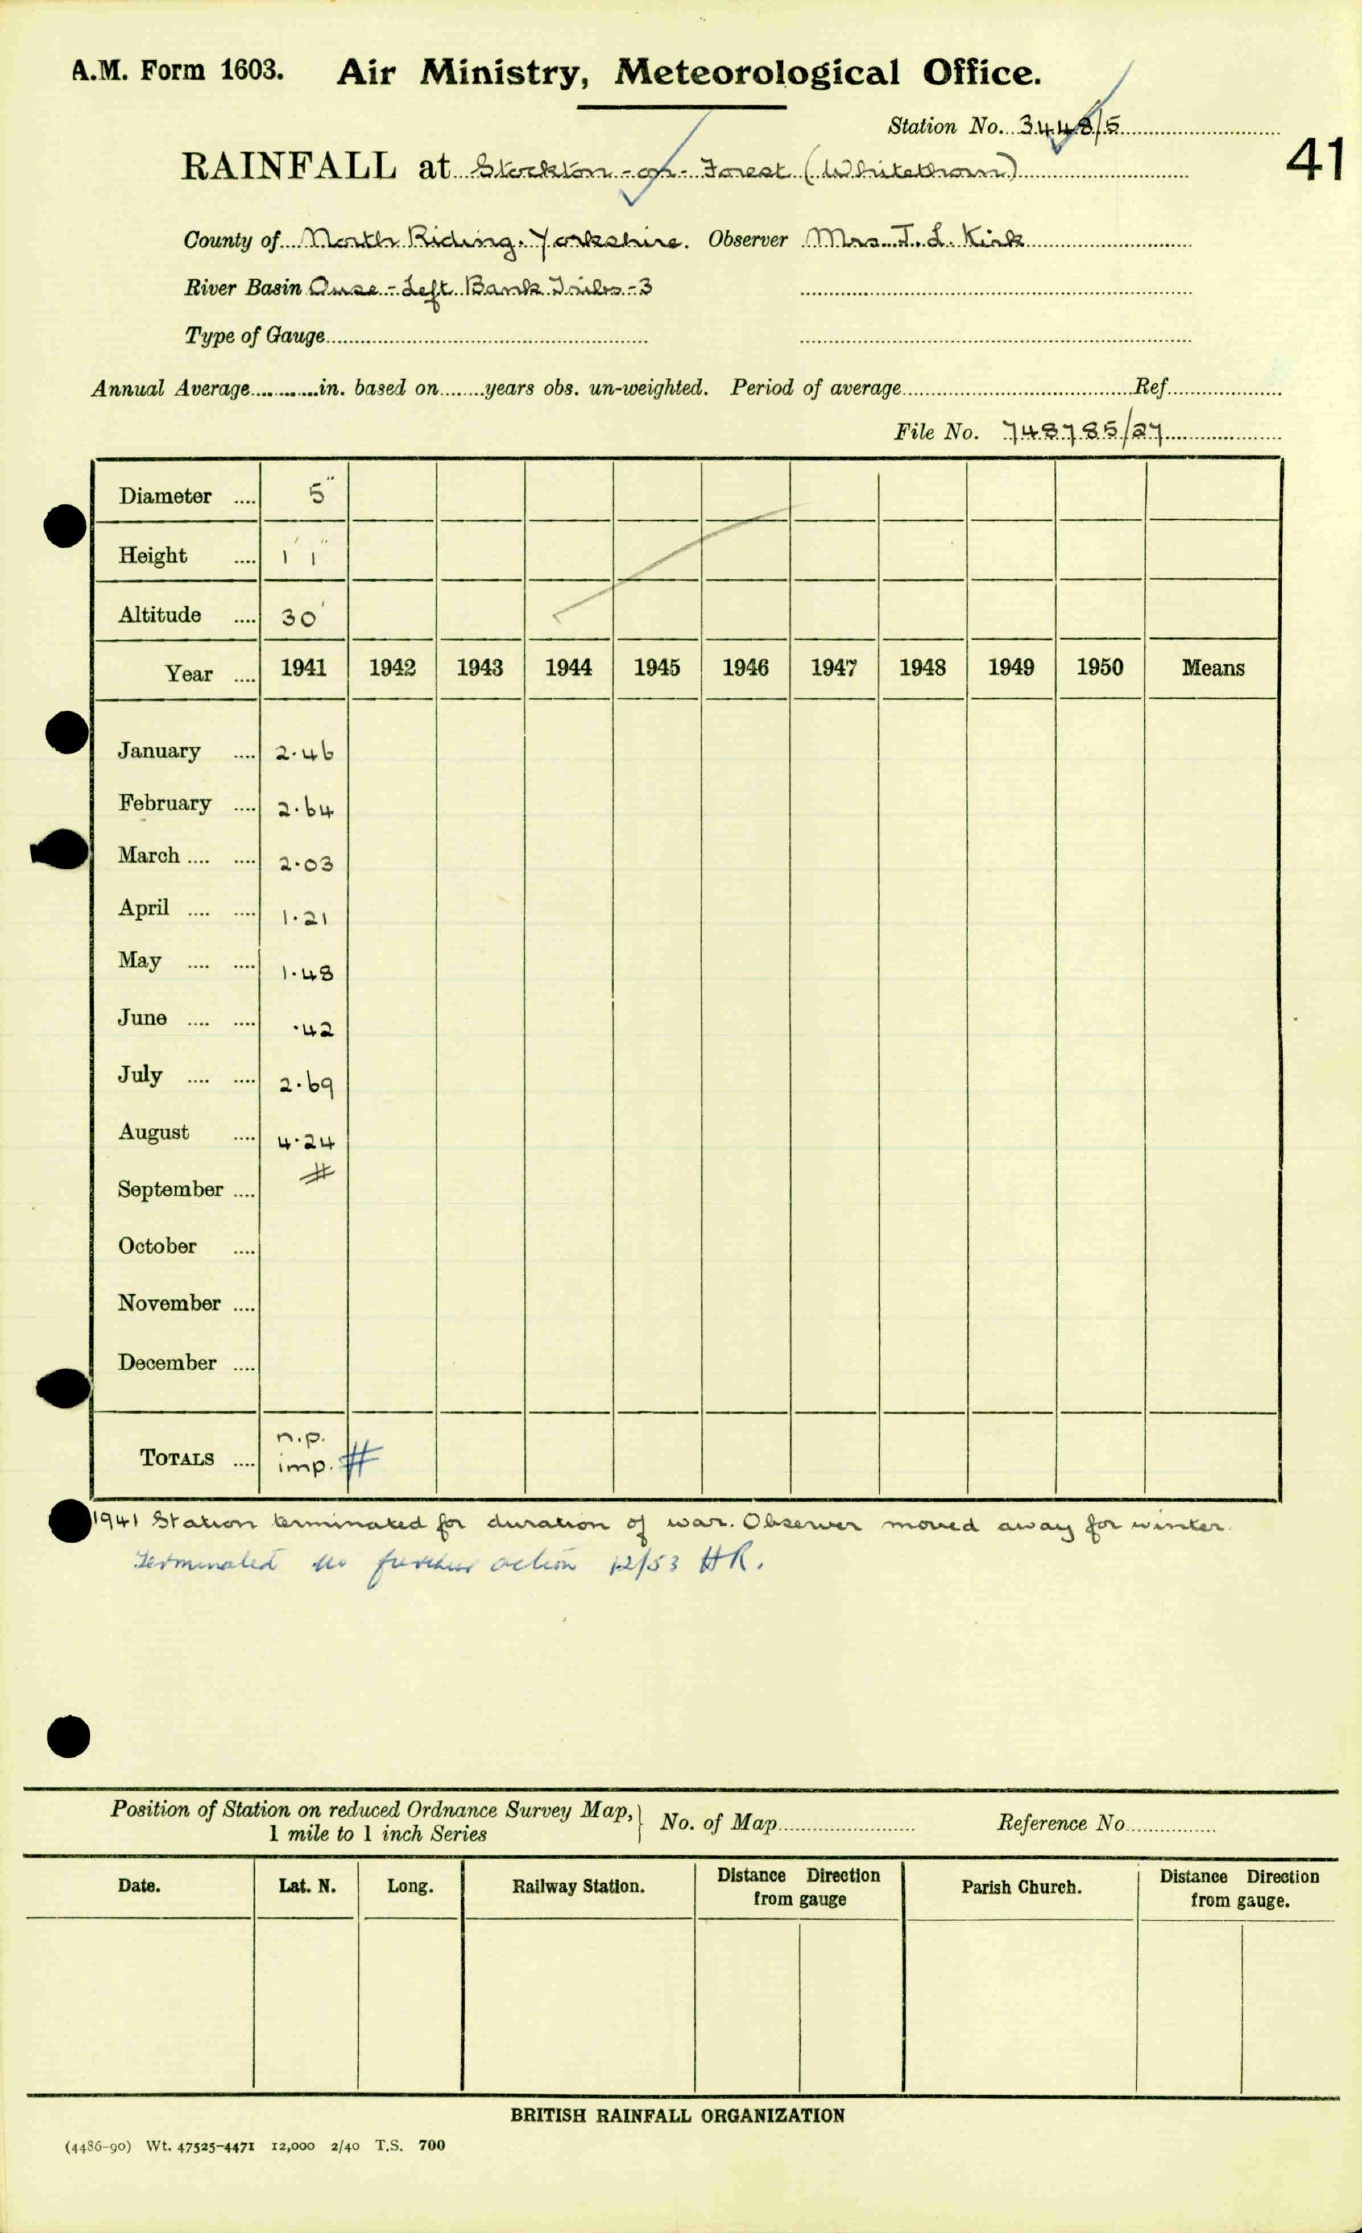 A.M. Form 1603. Air Ministry, Meteorological Office.
Station No. 3448/5
41
RAINFALL at Stockton-on-Forest (Whitethorn)
County of North Riding, Yorkshire. Observer Mrs. T. L. Kirk
River Basin Ouse - Left Bank Tribs - 3
Type of Gauge
Annual Average in. based on years obs. un-weighted. Period of average Ref.
File No. 748785/27
Diameter .... 5"
Height .... 1' 1"
Altitude .... 30'
Year .... 1941 1942 1943 1944 1945 1946 1947 1948 1949 1950 Means
January .... 2.46
February .... 2.64
March .... .... 2.03
April .... .... 1.21
May .... .... 1.48
June .... .... .42
July .... .... 2.69
August .... 4.24
September .... #
October ....
November ....
December ....
TOTALS .... n.p.
imp. #
1941 Station terminated for duration of war. Observer moved away for winter.
Terminated no further action 12/53 HR.
Position of Station on reduced Ordnance Survey Map,} No. of Map Reference No.
1 mile to 1 inch Series
Date. Lat. N. Long. Railway Station. Distance Direction from gauge Parish Church. Distance Direction from gauge.
BRITISH RAINFALL ORGANIZATION
(4486-90) Wt. 47525-4471 12,000 2/40 T.S. 700